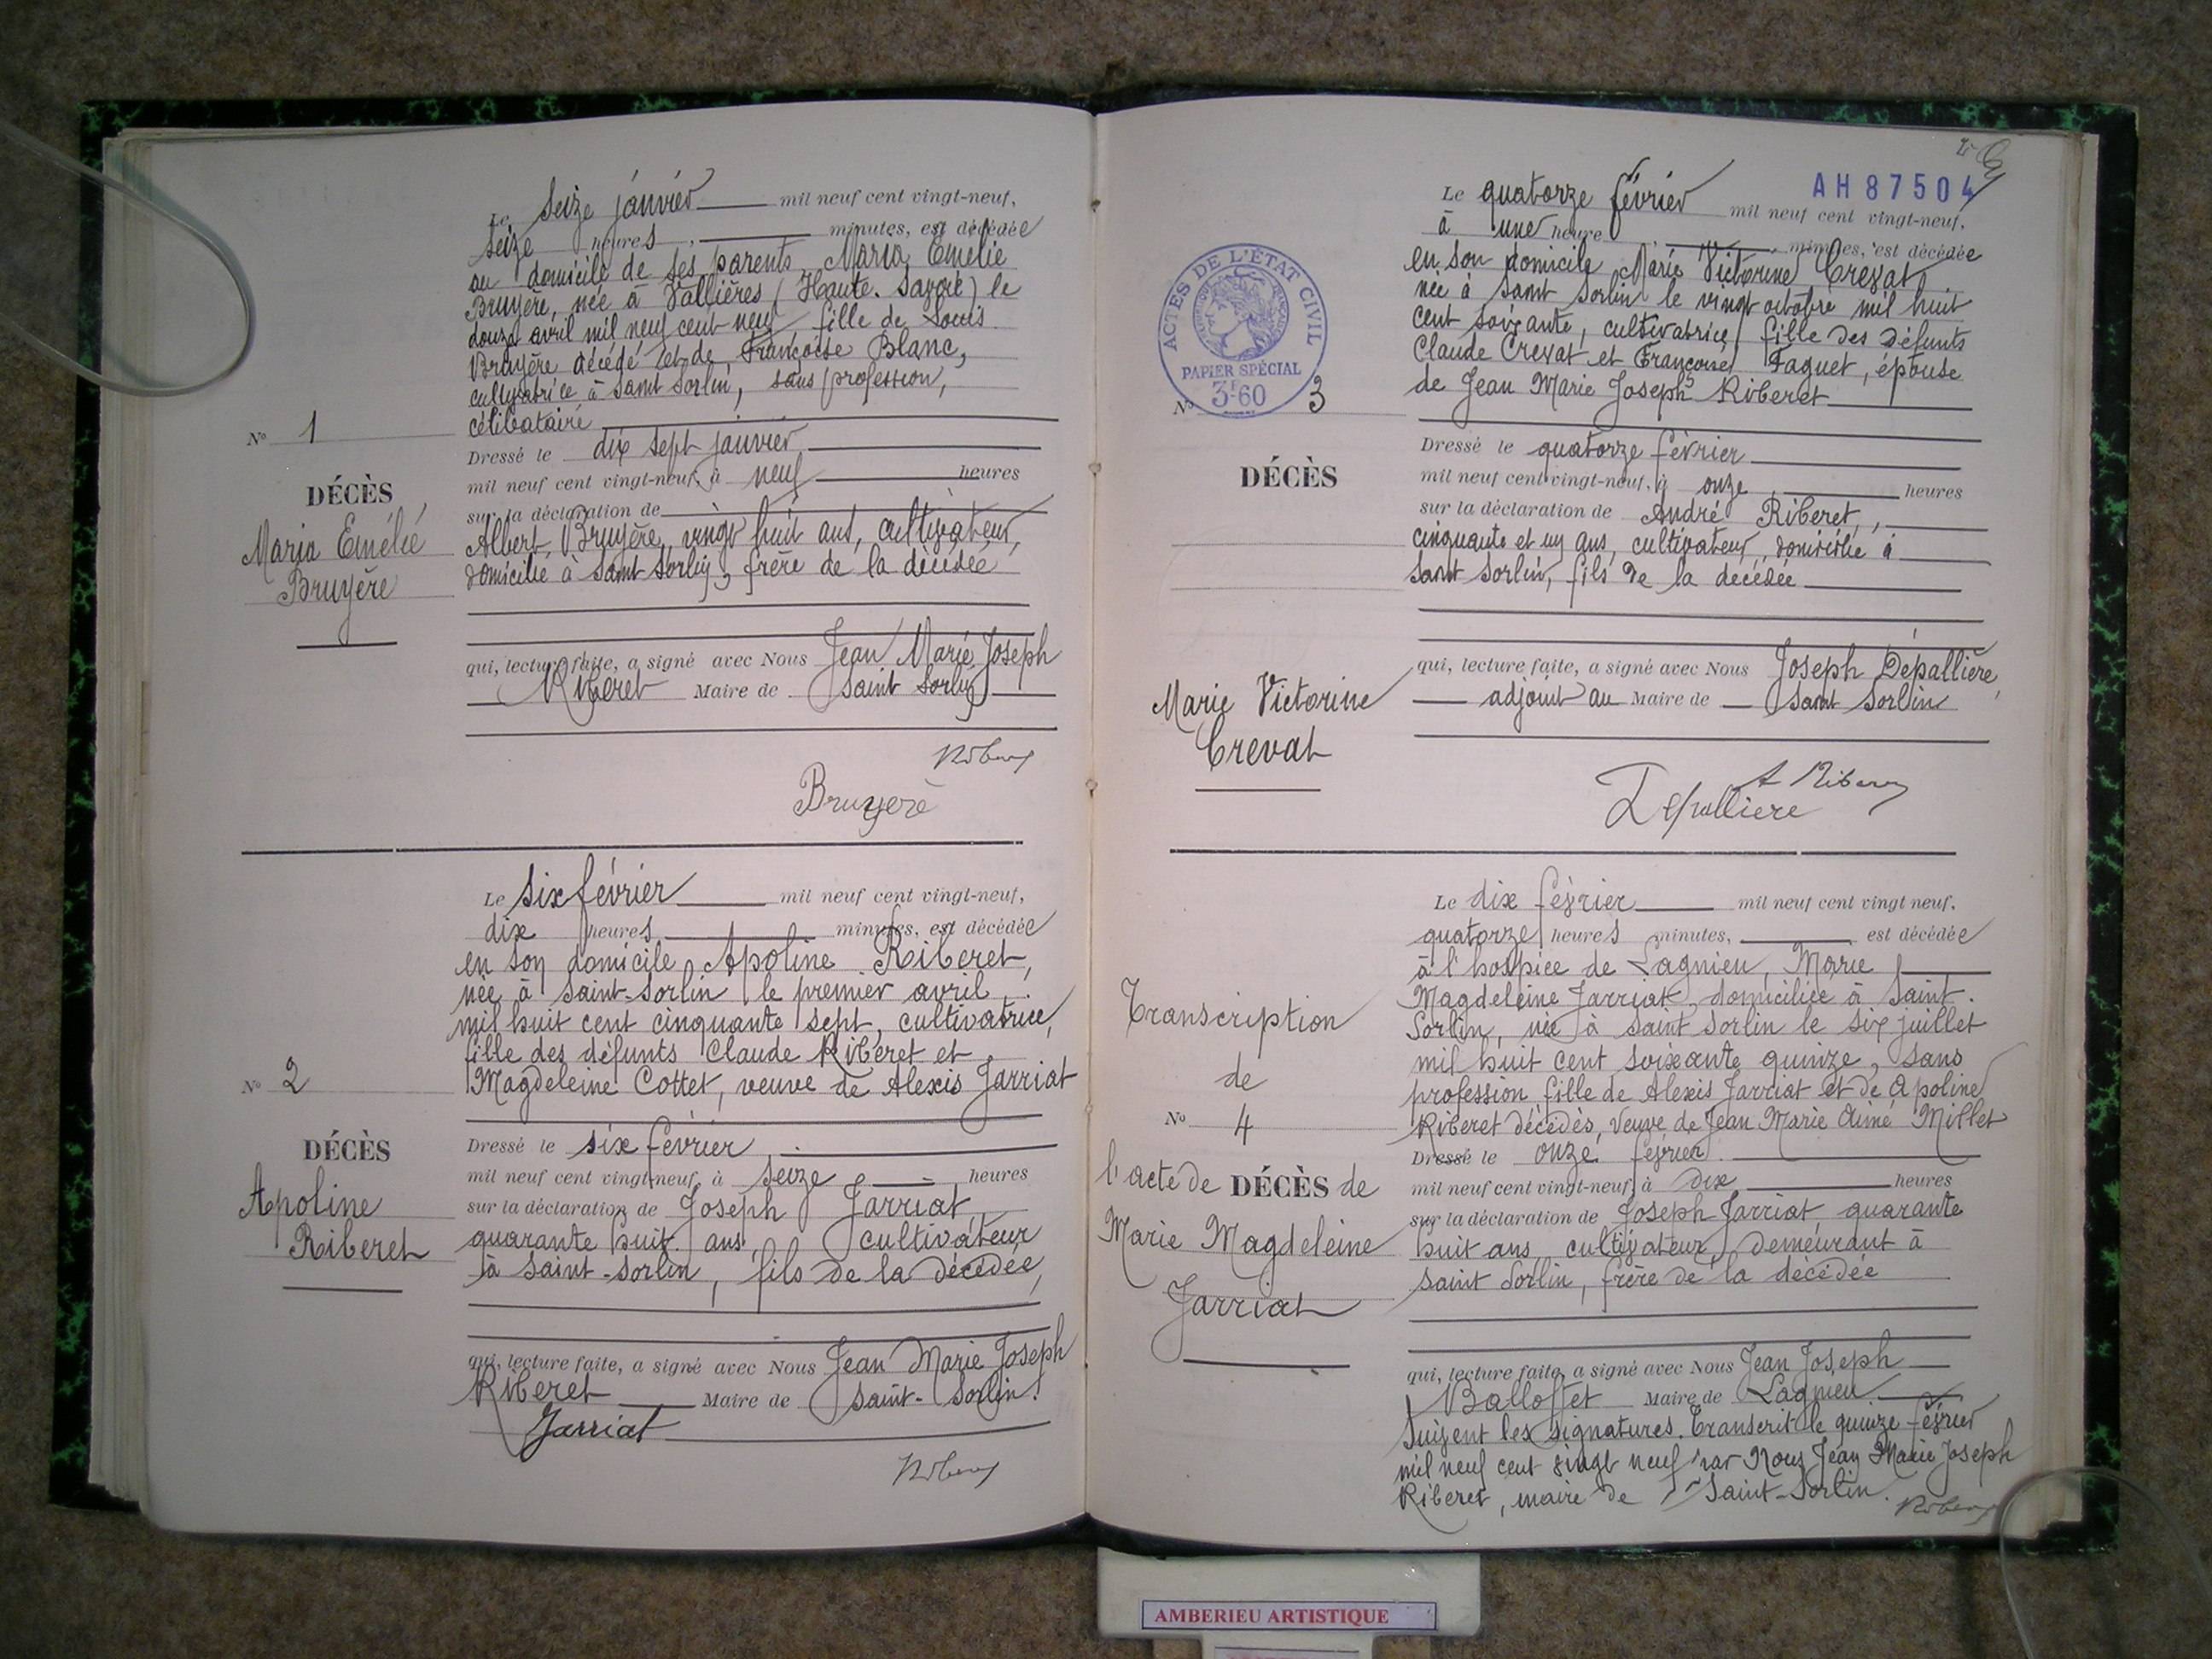 Le seize janvier mil neuf cent vingt-neuf,
seize heures, minutes, est décédée
au domicile de ses parents Maria Emélie
Bruyère, née à Vallières (Haute-Savoie) le
douze avril mil neuf cent neuf, fille de Louis
Bruyère décédé et de Françoise Blanc,
cultivatrice à Saint Sorlin, sans profession,
célibataire
Nº 1
Dressé le dix sept janvier
mil neuf cent vingt-neuf, à neuf heures
DÉCÈS
sur la déclaration de
Maria Emélie
Bruyère
Albert Bruyère, vingt huit ans, cultivateur,
domicilié à Saint Sorlin, frère de la décédée
qui, lecture faite, a signé avec Nous Jean Marie Joseph
Riberet Maire de Saint Sorlin
Riberet
Bruyere
Le six février mil neuf cent vingt-neuf,
dix heures minutes, est décédée
en son domicile Apoline Riberet,
née à Saint-Sorlin le premier avril
mil huit cent cinquante sept, cultivatrice,
fille des défunts Claude Riberet et
Magdeleine Cottet, veuve de Alexis Jarriat
Nº 2
DÉCÈS
Apoline
Riberet
Dressé le six février
mil neuf cent vingt-neuf, à seize heures
sur la déclaration de Joseph Jarriat
quarante huit ans, cultivateur
à Saint-Sorlin, fils de la décédée,
qui, lecture faite, a signé avec Nous Jean Marie Joseph
Riberet Maire de Saint-Sorlin.
Jarriat
Riberet
AH87504
Le quatorze février mil neuf cent vingt-neuf,
à une heure minutes, est décédée
en son domicile Marie Victorine Crevat
née à Saint Sorlin le vingt octobre mil huit
cent soixante, cultivatrice, fille des défunts
Claude Crevat et Françoise Faguet, épouse
de Jean Marie Joseph Riberet
ACTES DE L'ÉTAT CIVIL
PAPIER SPÉCIAL
3F60
Nº 3
DÉCÈS
Marie Victorine
Crevat
Dressé le quatorze février
mil neuf cent vingt-neuf, à onze heures
sur la déclaration de André Riberet,
cinquante et un ans, cultivateur, domicilié à
Saint Sorlin, fils de la décédée
qui, lecture faite, a signé avec Nous Joseph Dépallière,
adjoint au Maire de Saint Sorlin
A Riberet
Depalliere
Le dix février mil neuf cent vingt neuf,
quatorze heures minutes, est décédée
à l'hospice de Lagnieu, Marie
Magdeleine Jarriat, domiciliée à Saint-
Sorlin, née à Saint Sorlin le six juillet
mil huit cent soixante quinze, sans
profession, fille de Alexis Jarriat et de Apoline
Riberet décédés, veuve de Jean Marie Aimé Millet
Transcription
de
Nº 4
l'acte de DÉCÈS de
Marie Magdeleine
Jarriat
Dressé le onze février
mil neuf cent vingt-neuf, à dix heures
sur la déclaration de Joseph Jarriat quarante
huit ans, cultivateur, demeurant à
Saint Sorlin, frère de la décédée
qui, lecture faite, a signé avec Nous Jean Joseph
Balloffet Maire de Lagnieu
Suivent les signatures. Transcrit le quinze février
mil neuf cent vingt neuf par Nous Jean Marie Joseph
Riberet, maire de Saint-Sorlin.
Riberet
AMBERIEU ARTISTIQUE